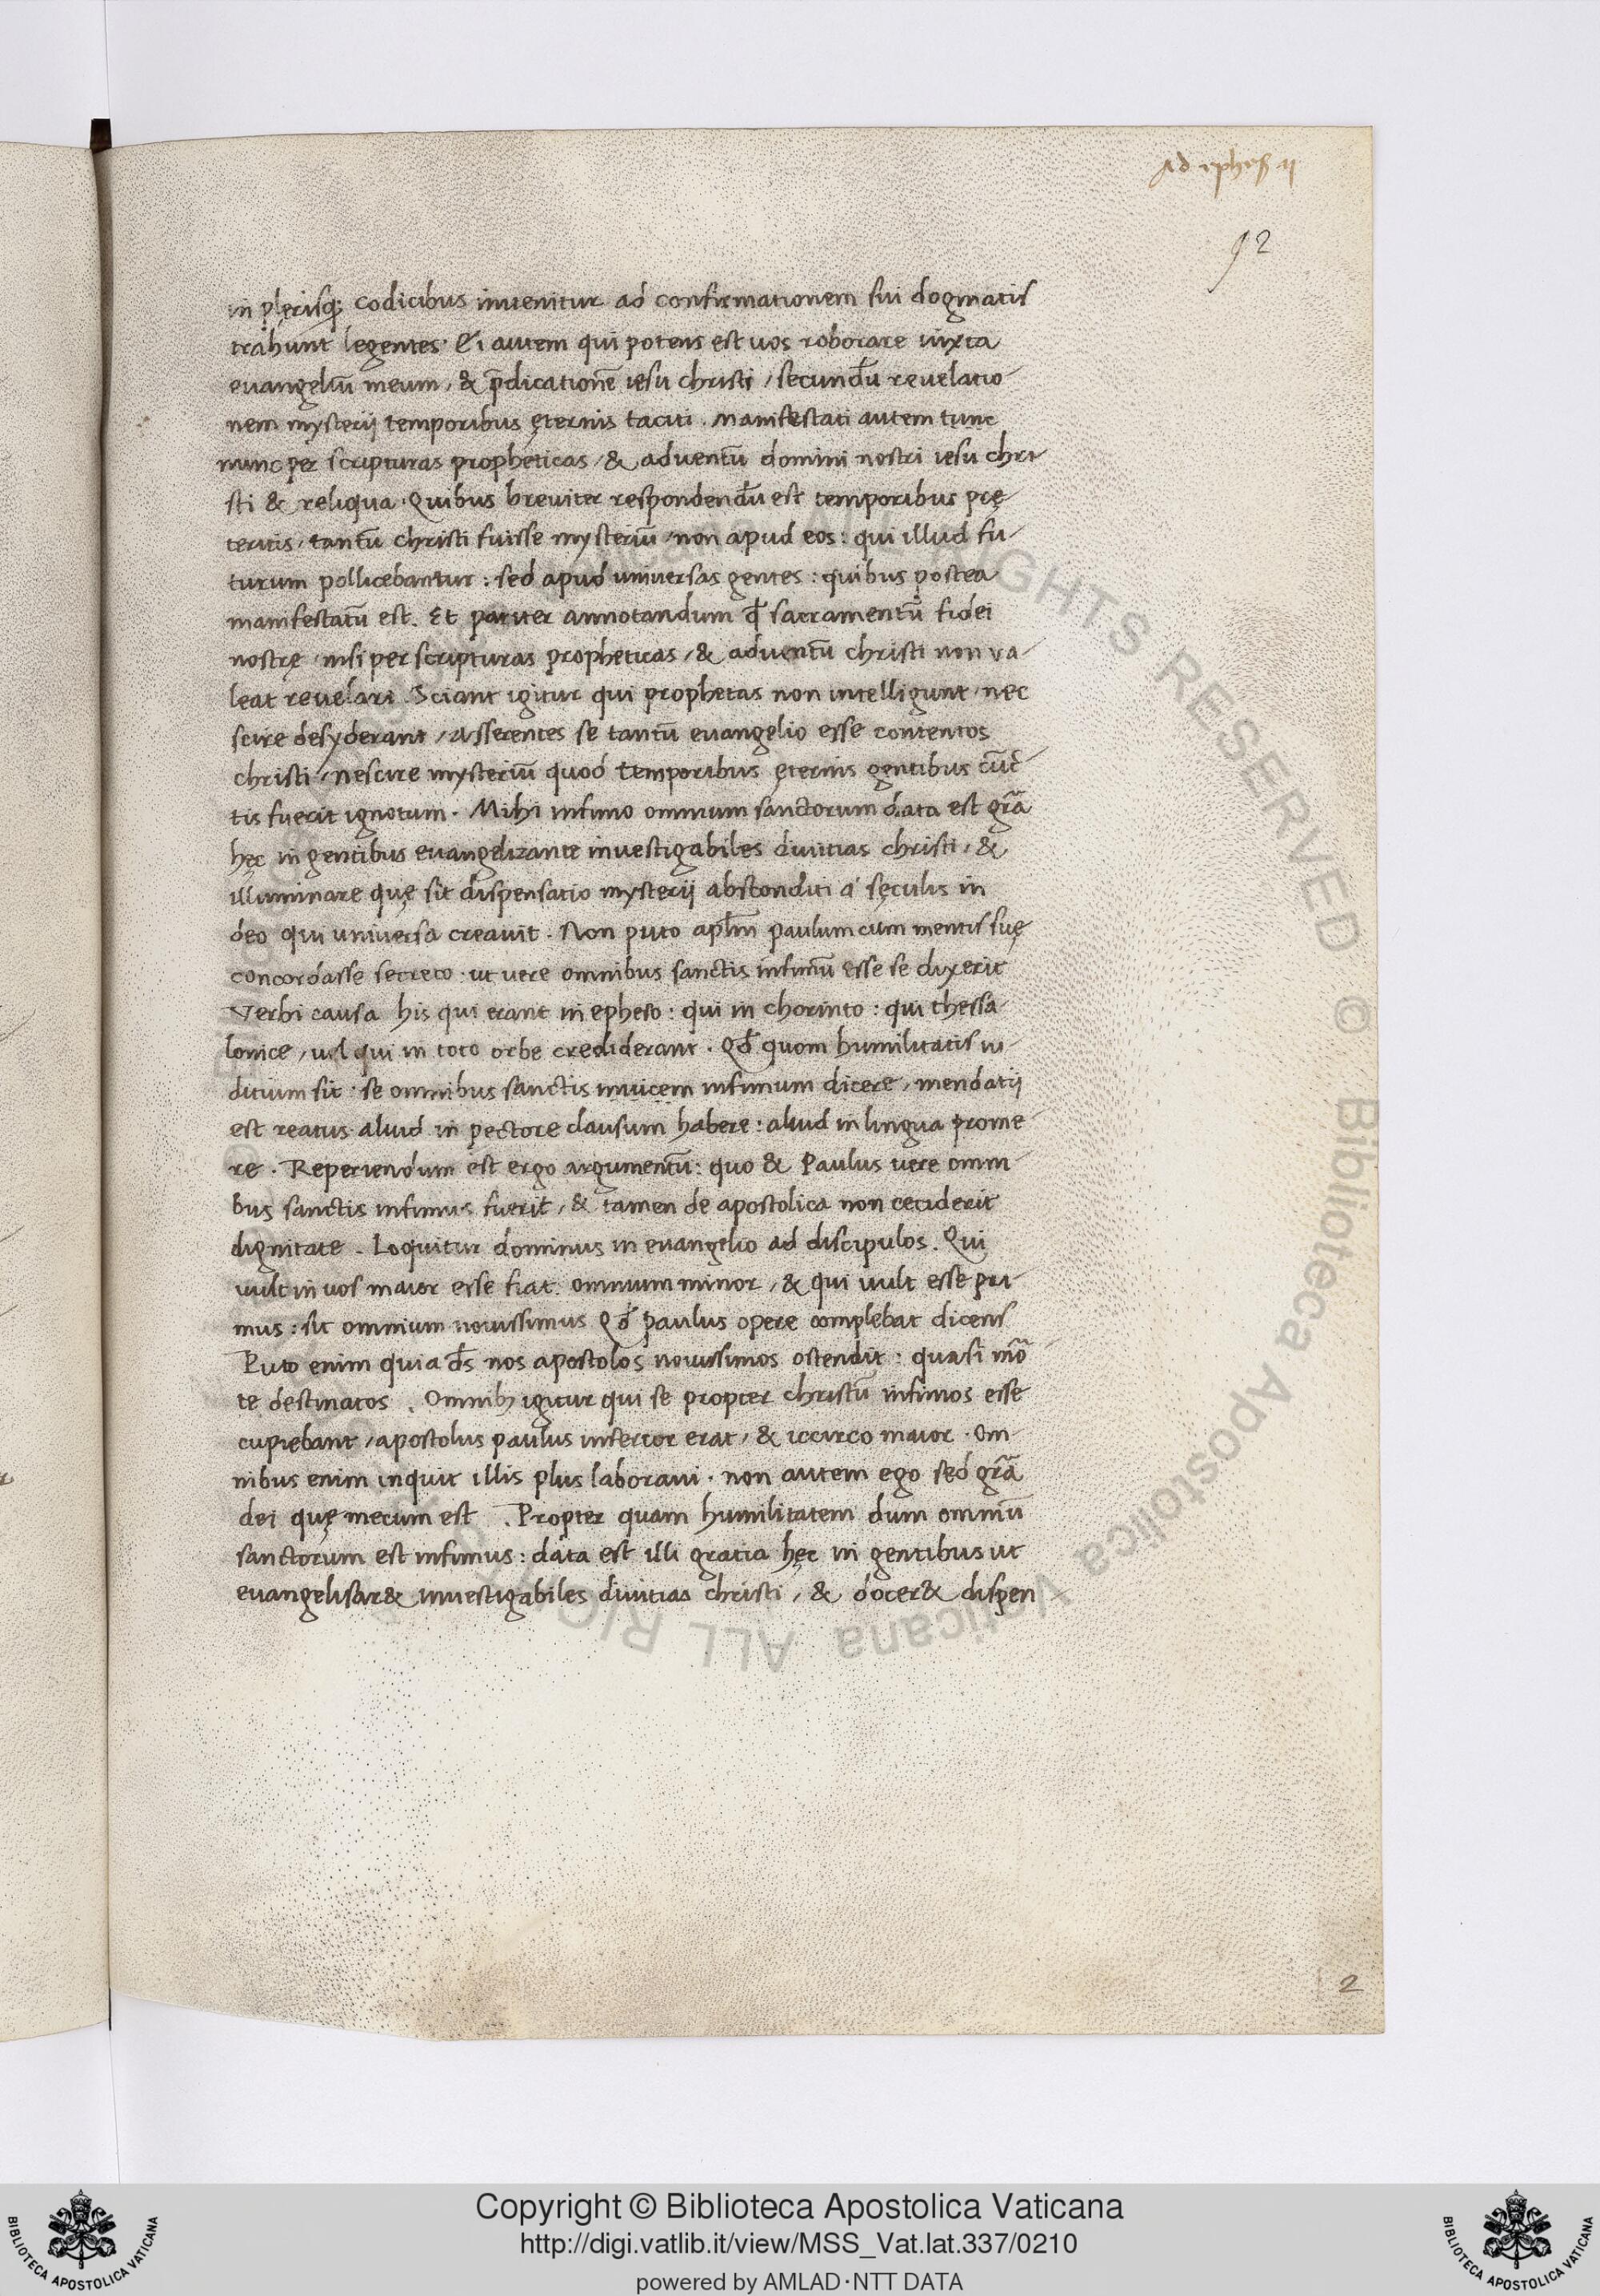 Ad ephes ij
92
in plęrisq; codicibus inuenitur ad confirmationem sui dogmatis
trahunt legentes. Ei autem qui potens est uos roborare iuxta
euangeliū meum, & p̄dicationē iesu christi, secundū reuelatio-
nem mysterij temporibus ęternis taciti. Manifestati autem tunc
nunc per scripturas propheticas, & aduentū domini nostri iesu chri-
sti & reliqua. Quibus breuiter respondendū est temporibus prę-
teritis, tantū christi fuisse mysteriū, non apud eos: qui illud fu-
turum pollicebantur: sed apud uniuersas gentes: quibus postea
manifestatū est. Et pariter annotandum qđ sacramentū fidei
nostrę, nisi per scripturas propheticas, & aduentū christi non va-
leat reuelari. Sciant igitur qui prophetas non intelligunt, nec
scire desyderant, asserentes se tantū euangelio esse contentos
christi, nescire mysteriū quod temporibus ęternis gentibus cūc-
tis fuerit ignotum. Mihi infimo omnium sanctorum data est gr̄a
hęc in gentibus euangelizante inuestigabiles diuitias christi, &
illuminare quę sit dispensatio mysterij absconditi a' sęculis in
deo qui uniuersa creauit. Non puto apl̄m paulum cum mentis suę
concordasse secreto. ut uere omnibus sanctis infimū esse se dixerit
Verbi causa his qui erant in epheso: qui in chorinto: qui thessa-
lonice, uel qui in toto orbe crediderant. Qđ quom humilitatis in-
ditium sit. se omnibus sanctis inuicem infimum dicere, mendatij
est reatus aliud in pectore clausum habere: aliud in lingua prome-
re. Reperiendum est ergo argumentū: quo & Paulus uere omni-
bus sanctis infimus fuerit, & tamen de apostolica non ceciderit
dignitate. Loquitur dominus in euangelio ad discipulos. Qui
uult in uos maior esse fiat omnium minor, & qui uult esse pri-
mus: sit omnium nouissimus Qđ paulus opere complebat dicens
Puto enim quia d̄s nos apostolos nouissimos ostendit: quasi mō-
te destinatos. Omnib; igitur qui se propter christū infimos esse
cupiebant, apostolus paulus inferior erat, & iccirco maior. Om-
nibus enim inquit illis plus laboraui. non autem ego sed gr̄a
dei quę mecum est. Propter quam humilitatem dum omniū
sanctorum est infimus: data est illi gratia hęc in gentibus ut
euangelisar& inuestigabiles diuitias christi, & docer& dispen
2
© Biblioteca Apostolica Vaticana ALL RIGHTS RESERVED
Copyright © Biblioteca Apostolica Vaticana
http://digi.vatlib.it/view/MSS_Vat.lat.337/0210
powered by AMLAD·NTT DATA
BIBLIOTECA APOSTOLICA VATICANA
BIBLIOTECA APOSTOLICA VATICANA